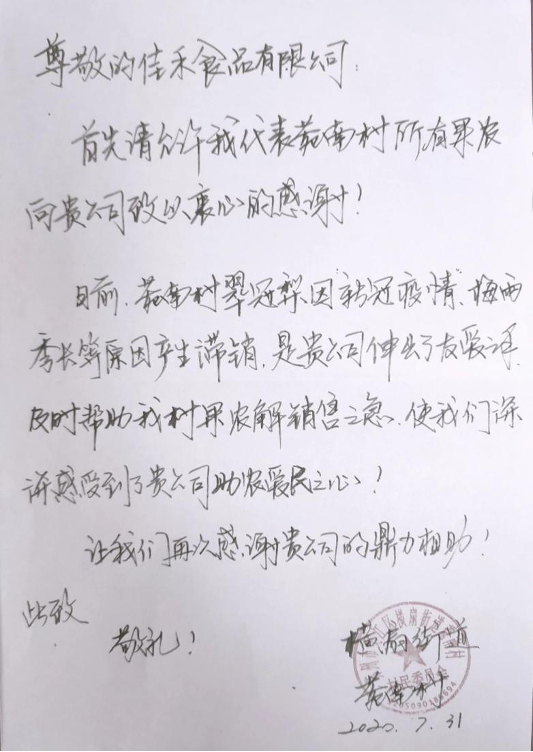 尊敬的佳禾食品有限公司:
首先请允许我代表菀南村所有果农
向贵公司致以衷心的感谢!
目前,菀南村翠冠梨因"新冠疫情"、梅雨
季长等原因产生滞销,是贵公司伸出了友爱之手,
及时帮助我村果农解销售之急,使我们深
深感受到了贵公司助农爱民之心!
让我们再次感谢贵公司的鼎力相助!
此致
敬礼!
横扇街道
菀南村
2020.7.31
区横扇街道
村民委员会